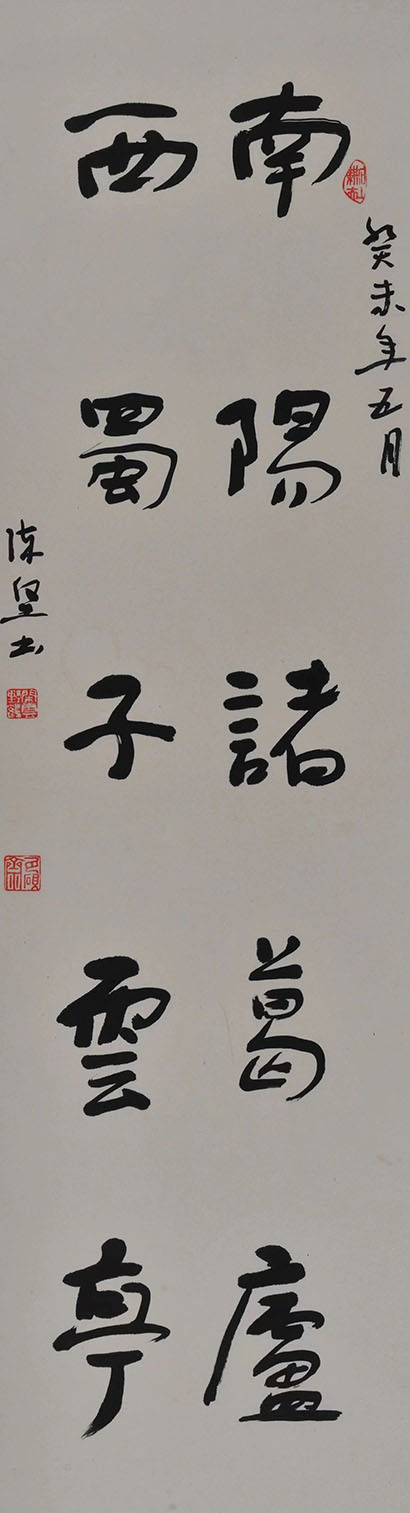 癸未年五月
南陽諸葛廬
西蜀子雲亭
陳堅書